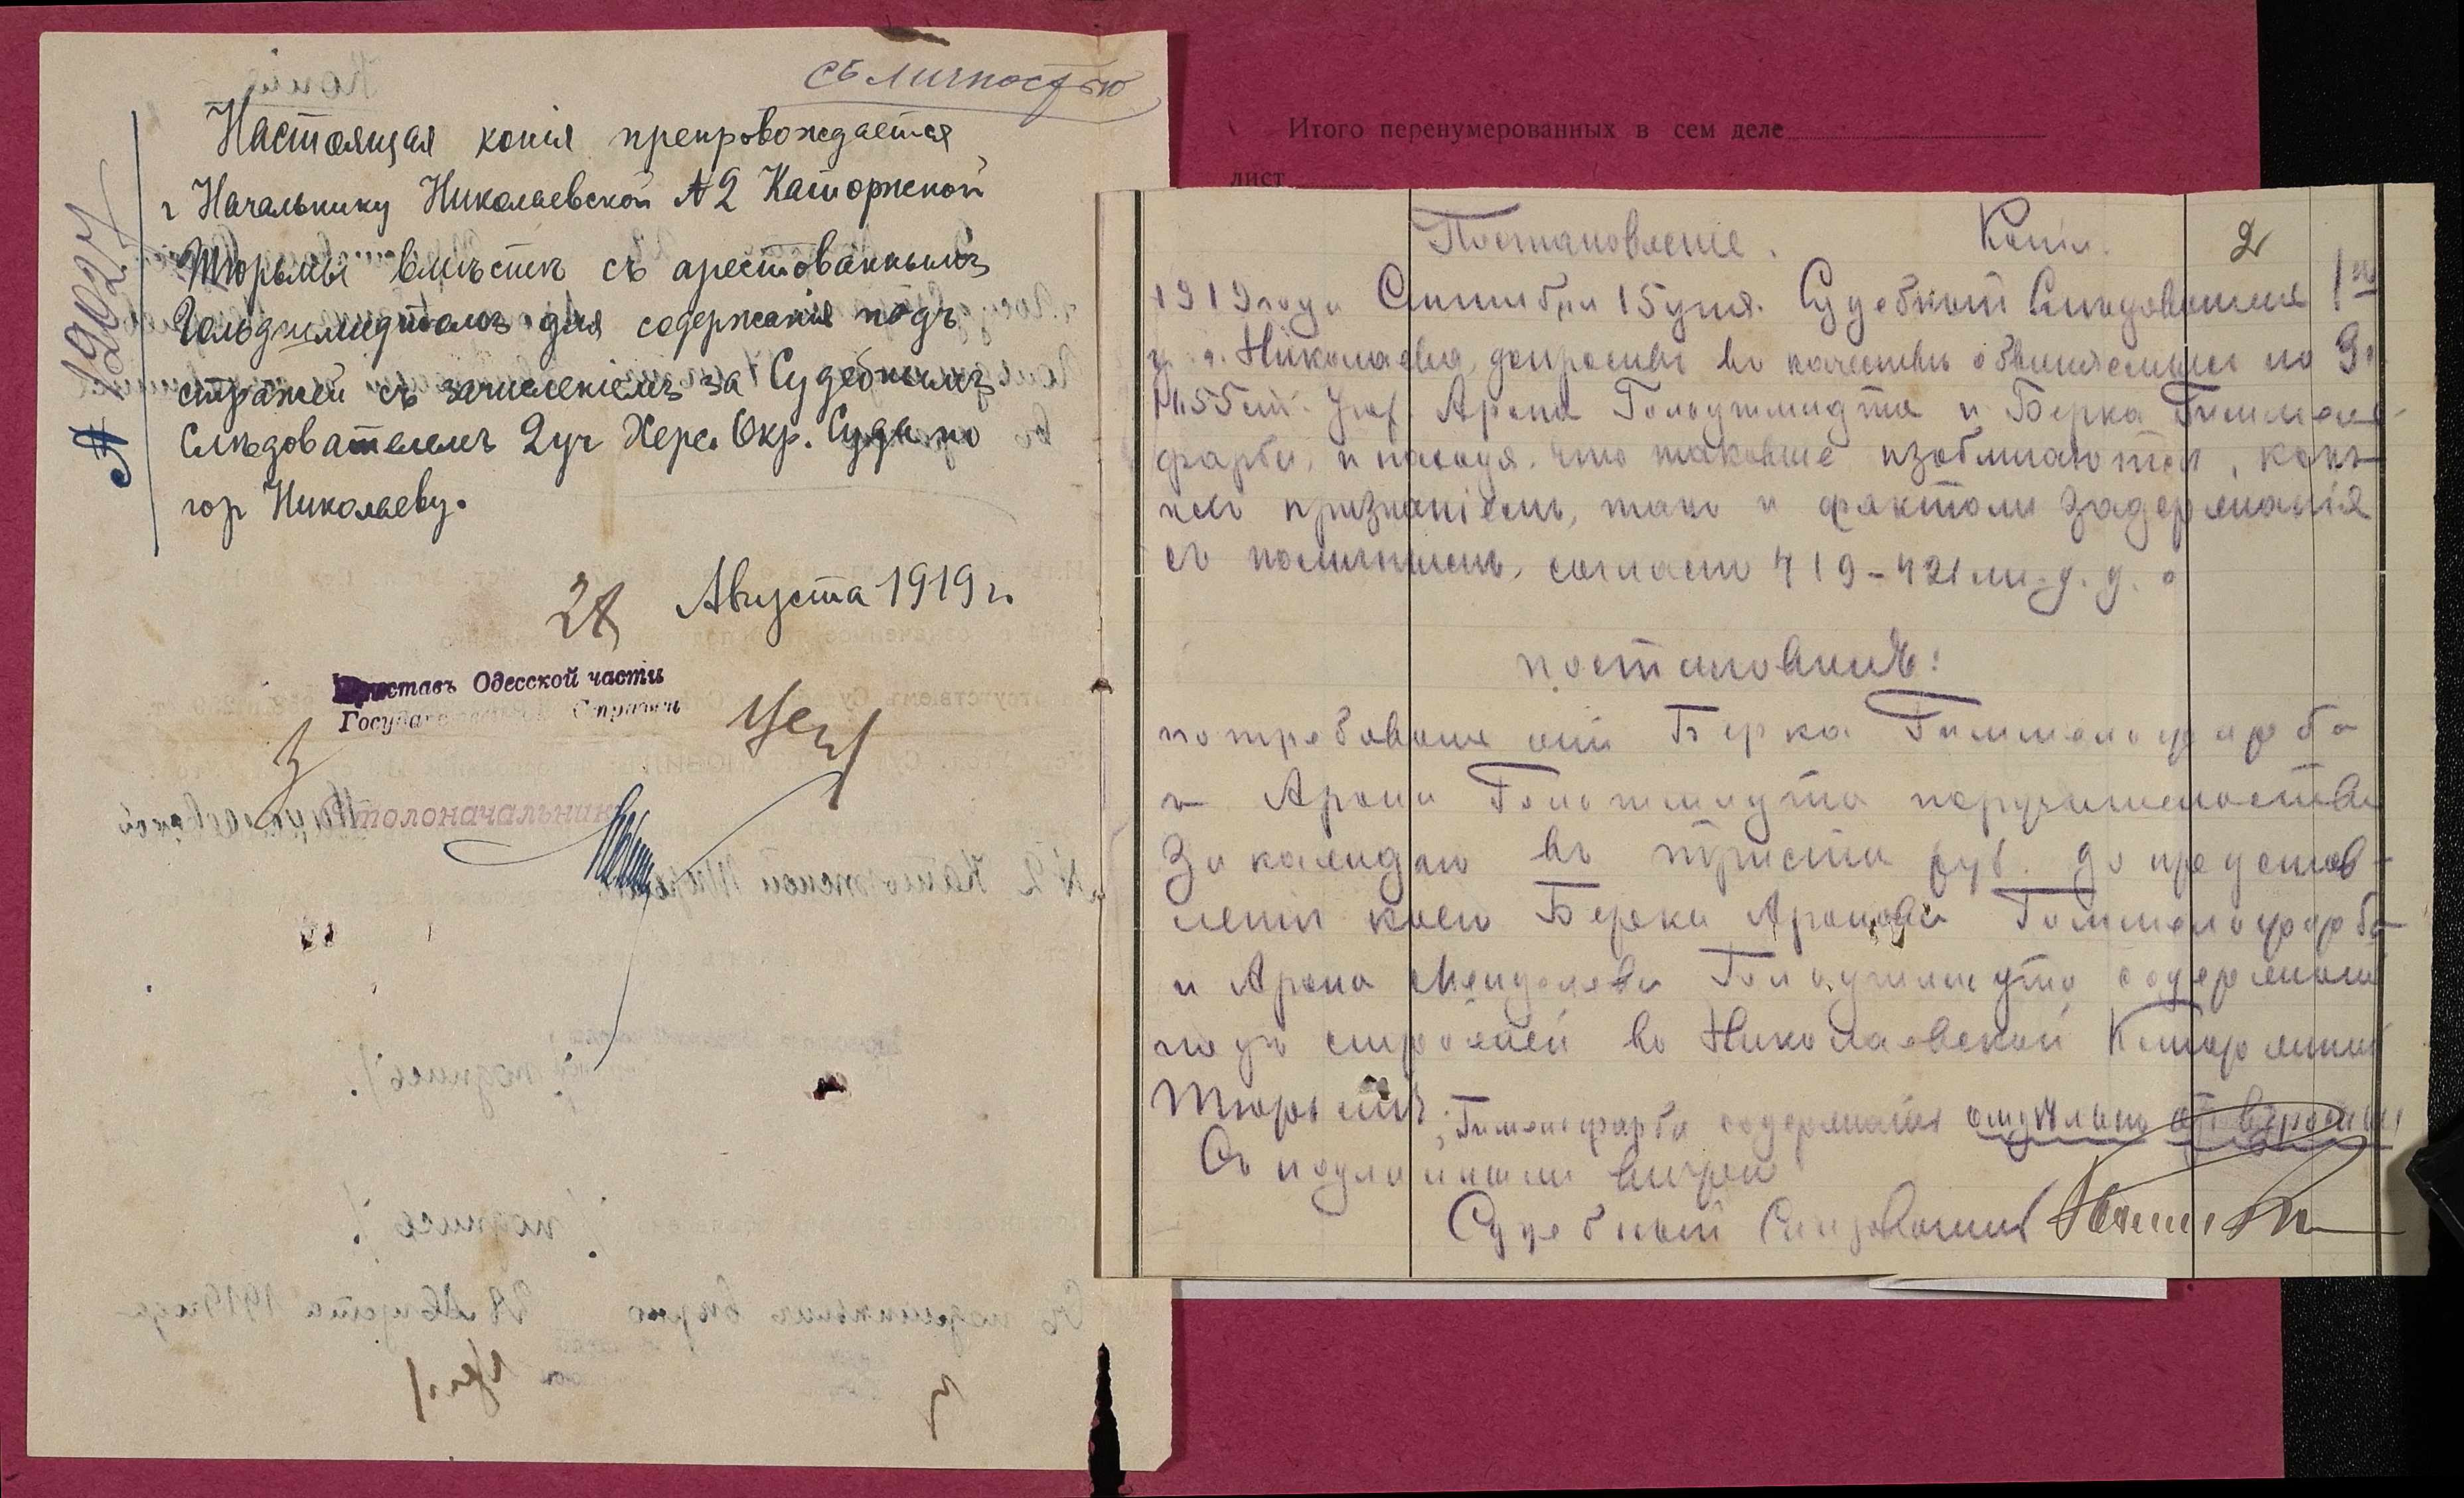 съ личностью
Настоящая копія препровождается
г Начальнику Николаевской №2 Каторжной
Тюрьмы вмѣстѣ съ арестованнымъ
Гольдшмидтомъ для содержанія подъ
стражей съ зачисленіемъ за Судебнымъ
Слѣдователемъ 2 уч Херс. Окр. Суда по
гор Николаеву.
№ 19027
28 Августа 1919 г.
Приставъ Одесской части
Государственной Стражи
Столоначальникъ
Итого перенумерованных в сем деле
лист
Постановленіе. Копія. 2
1919 года Сентября 15 дня. Судебный Слѣдователь 1го
у. г. Николаева, допросивъ въ качествѣ обвиняемыхъ по
1655 ст. Арона Гольдшмидта и Берка Гиммель-
фарба, и находя, что таковые изобличаются, какъ
ихъ признаніемъ, такъ и фактомъ задержанія
съ поличнымъ, согласно 419-421
постановилъ:
потребовать отъ Берка Гиммельфарба
и Арона Гольдшмидта поручительства
за каждаго въ триста руб. до представ-
ленія коего Берка Аронова Гиммельфарба
и Арона Менделева Гольдшмидта содержать
подъ стражей въ Николаевской Каторжной
Тюрьмѣ; Гимельфарба содержать отдѣльно отъ взрослыхъ
Съ подлиннымъ вѣрно
Судебный Слѣдователь